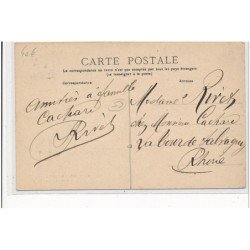 426
CARTE POSTALE
La correspondance au recto n'est pas acceptée par tous les pays étrangers
(Se renseigner à la poste)
Correspondance
Adresse
Amitiés à famille
Cachard
Rivet
Madame Rivet
chez Monsieur Cachard
La
Rhône